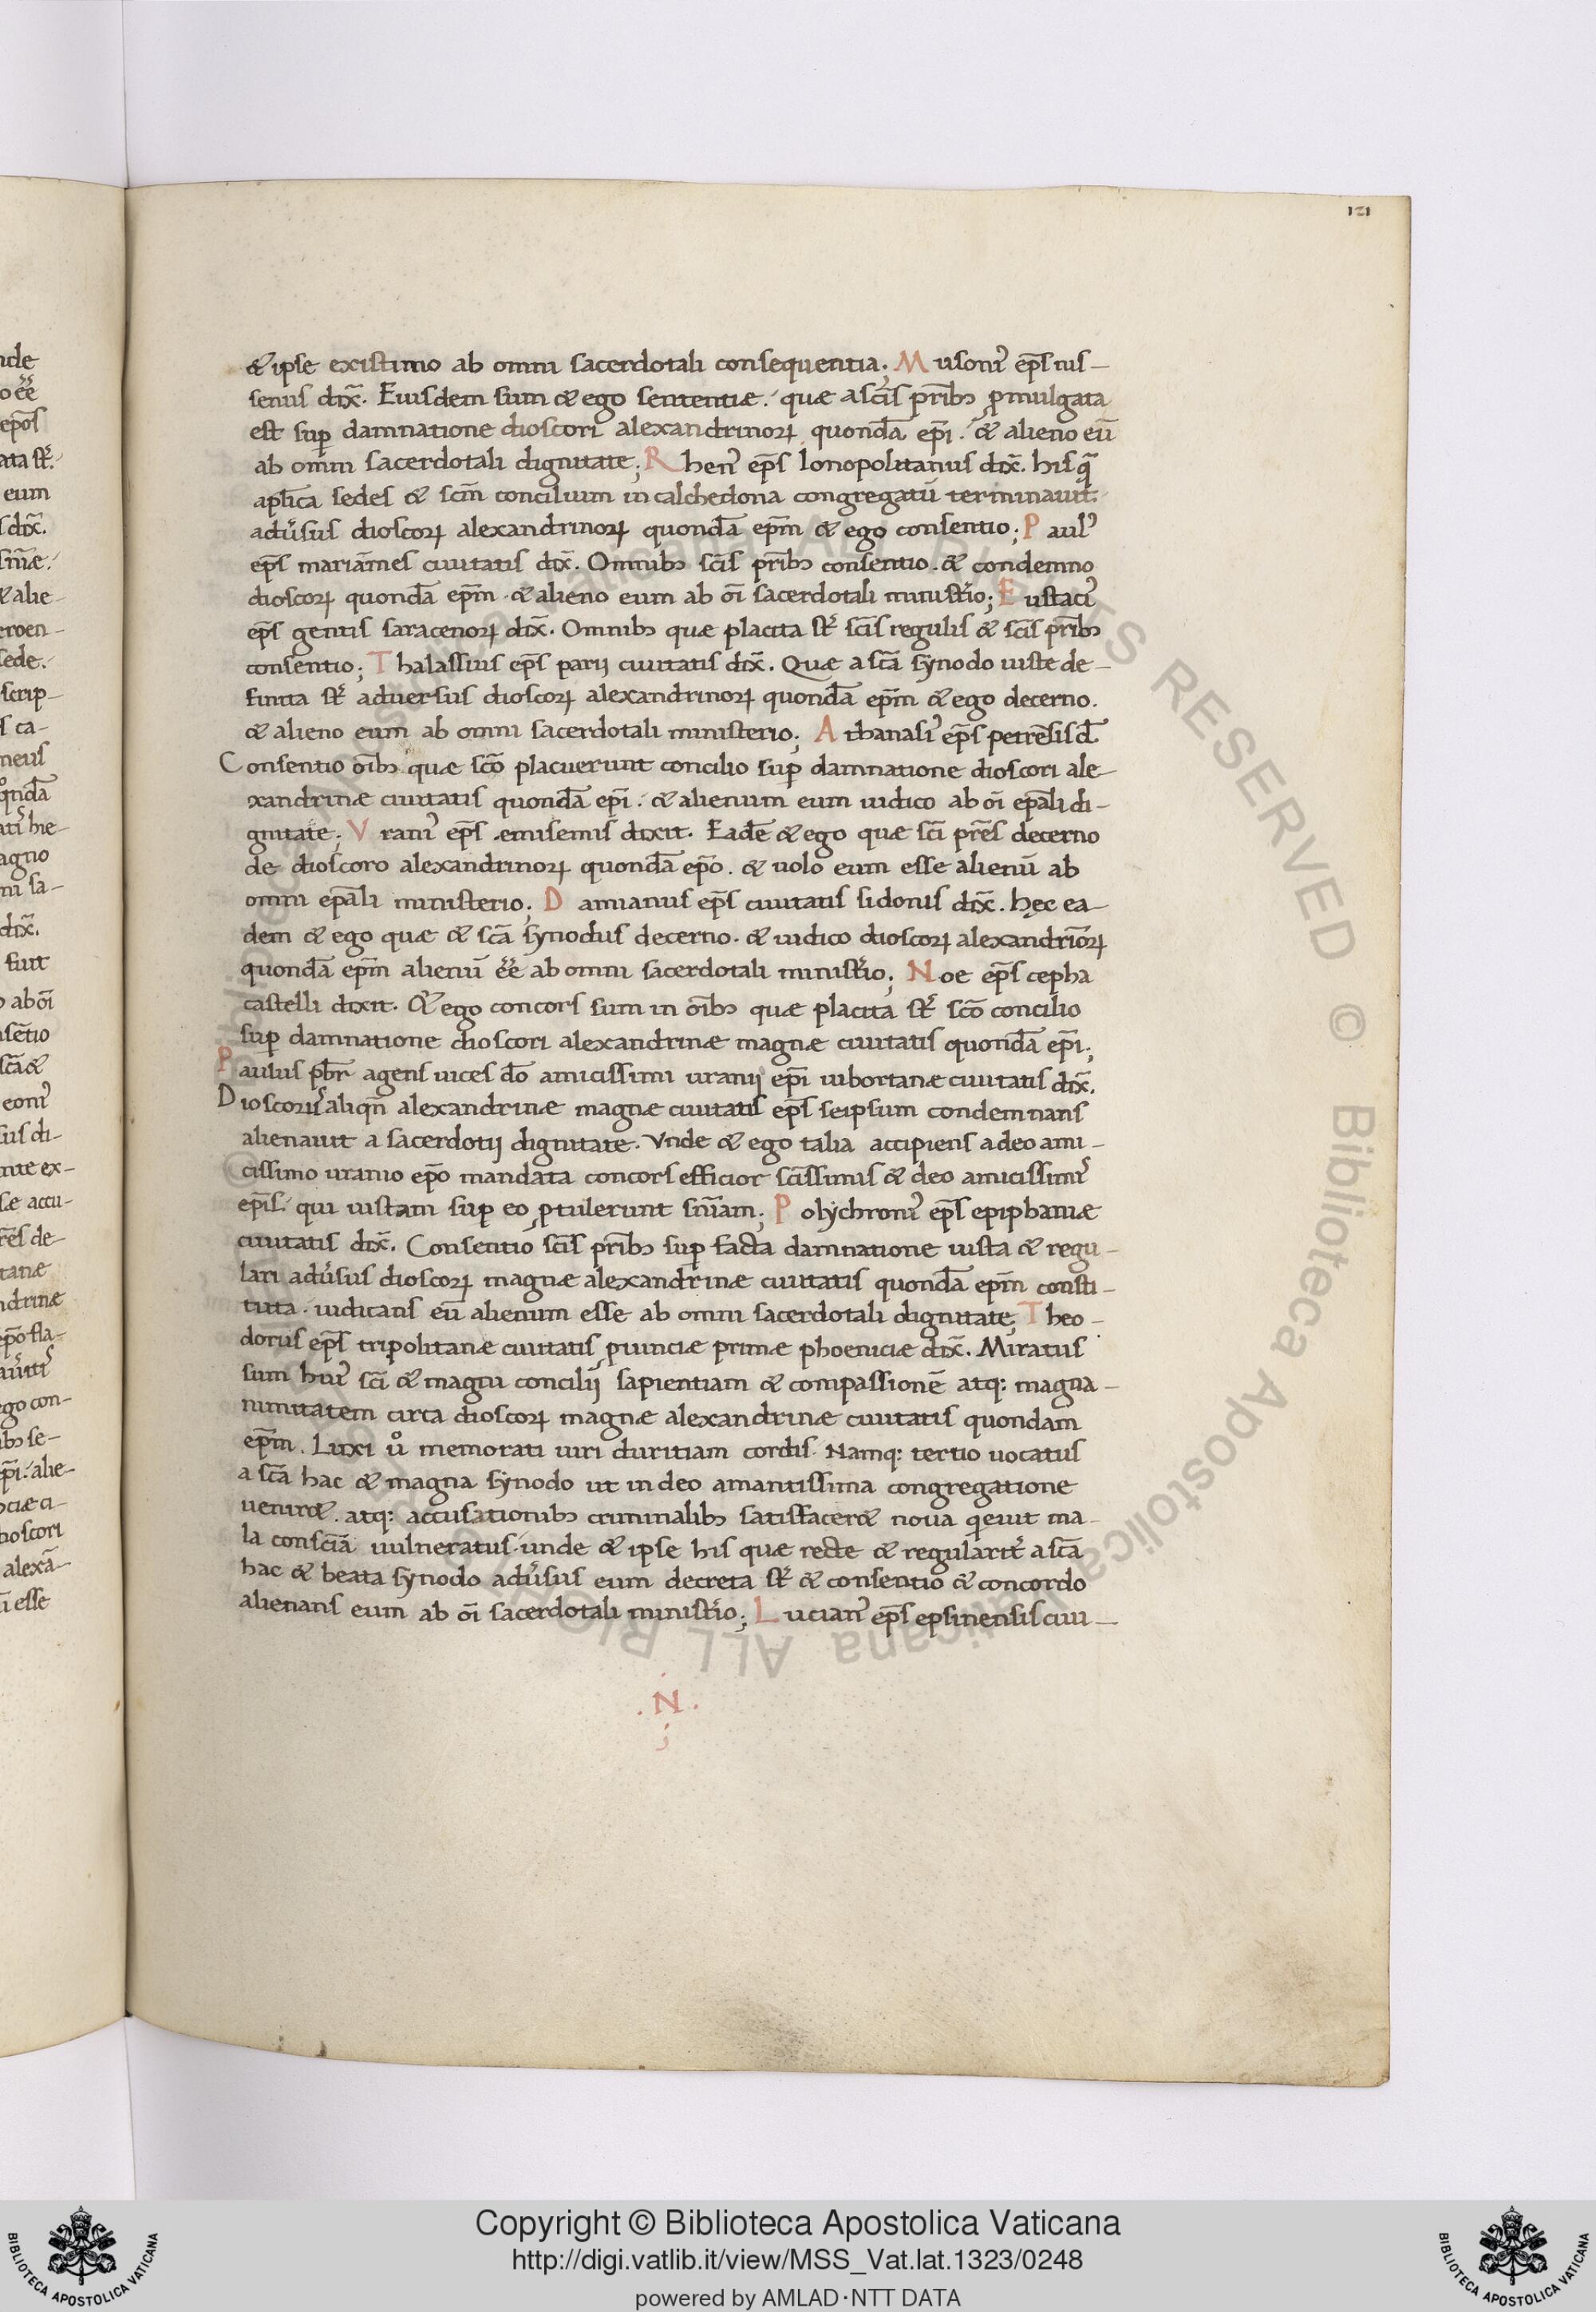 121
& ipse existimo ab omni sacerdotali consequentia; Musoni᾽ ep̄s nis-
senus dix̄. Eiusdem sum & ego sententiæ. quæ a sc̄is prīb; ꝓmulgata
est suꝑ damnatione dioscori alexandrinoꝝ quondā ep̄i. & alieno eū
ab omni sacerdotali dignitate; Rhen᾽ ep̄s Ionopolitanus dix̄. his q̄
aplīca sedes & scm̄ concilium in calchedona congregatū terminauit.
adu᾽sus dioscoꝝ alexandrinoꝝ quondā ep̄m & ego consentio; Paul᾽
ep̄s mariāmes ciuitatis dix̄. Omnib; sc̄is prīb; consentio. & condemno
dioscoꝝ quondā ep̄m. & alieno eum ab oī sacerdotali minist᾽io; Eustaci᾽
ep̄s gentis saracenoꝝ dix̄. Omnib; quæ placita st᾽ sc̄is regulis & sc̄is prīb;
consentio; Thalassius ep̄s parij ciuitatis dix̄. Quæ a sc̄a synodo iuste de-
finita st᾽ adversus dioscoꝝ alexandrinoꝝ quondā ep̄m & ego decerno.
& alieno eum ab omni sacerdotali ministerio; Athanasi᾽ ep̄s petrēsis d̄
Consentio oīb; quæ sc̄o placuerunt concilio suꝑ damnatione dioscori ale-
xandrinæ ciuitatis quondā ep̄i. & alienum eum iudico ab oī ep̄ali di-
gnitate; Vrani᾽ ep̄s emisemis dixit. Eadē & ego quæ sc̄i prēs decerno
de dioscoro alexandrinoꝝ quondā ep̄o. & uolo eum esse alienū ab
omni ep̄ali ministerio; Damianus ep̄s ciuitatis sidonis dix̄. hęc ea-
dem & ego quæ & sc̄a synodus decerno. & iudico dioscoꝝ alexandriōꝝ
quondā ep̄m alienū ēē ab omni sacerdotali minist᾽io; Noe ep̄s cepha
castelli dixit. & ego concors sum in oīb; quæ placita st᾽ sc̄o concilio
suꝑ damnatione dioscori alexandrinæ magnæ ciuitatis quondā ep̄i;
Paulus pbr̄ agens uices dō amicissimi uranij ep̄i iubortanæ ciuitatis dix̄.
Dioscorus aliqn̄ alexandrinæ magnæ ciuitatis ep̄s seipsum condemnans
alienauit a sacerdotij dignitate. Vnde & ego talia accipiens a deo ami-
cissimo uranio ep̄o mandata concors efficior sc̄issimis & deo amicissimi᾽
ep̄is. qui iustam suꝑ eo ꝓtulerunt sniam̄; Polychroni᾽ ep̄s epiphaniæ
ciuitatis dix̄. Consentio sc̄is prīb; suꝑ facta damnatione iusta & regu-
lari adu᾽sus dioscoꝝ magnæ alexandrinæ ciuitatis quondā ep̄m consti-
tuta. iudicans eū alienum esse ab omni sacerdotali dignitate; Theo-
dorus ep̄s tripolitanæ ciuitatis ꝓuinciæ primæ phoeniciæ dix̄. Miratus
sum hui᾽ sc̄i & magni concilij sapientiam & compassionē atq: magna-
nimitatem circa dioscoꝝ magnæ alexandrinæ ciuitatis quondam
ep̄m. Luxi u᷎o memorati uiri duritiam cordis. Namq: tertio uocatus
a sc̄a hac & magna synodo ut in deo amantissima congregatione
uenir&. atq: accusationib; criminalib; satisfacer& noua q̄euit ma-
la consciā uulneratus. unde & ipse his quæ recte & regularit᾽ a sc̄a
hac & beata synodo adu᾽sus eum decreta st᾽ & consentio & concordo
alienans eum ab oī sacerdotali minist᾽io; Lucian᾽ ep̄s epsinensis ciui-
.N.
Copyright © Biblioteca Apostolica Vaticana
http://digi.vatlib.it/view/MSS_Vat.lat.1323/0248
powered by AMLAD·NTT DATA